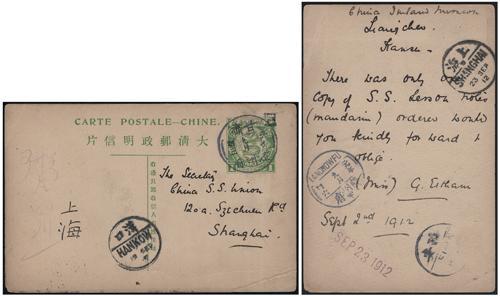 CARTE POSTALE—CHINE.
片信明政郵清大
The Secretary
China S.S. Union
120a. Szechuen Rd
Shanghai.
上海
漢口
HANKOW
China Inland Mission
Liangchow
Kansu.
上海
SHANGHAI
23 SEP
12
There was only one
Copy of S.S. Lesson notes
(mandarin) ordered would
you kindly forward &
oblige.
(Miss) G. Eltham
Sept 2nd 1912
SEP 23 1912